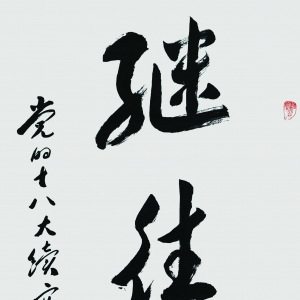 继往
党的十八大续